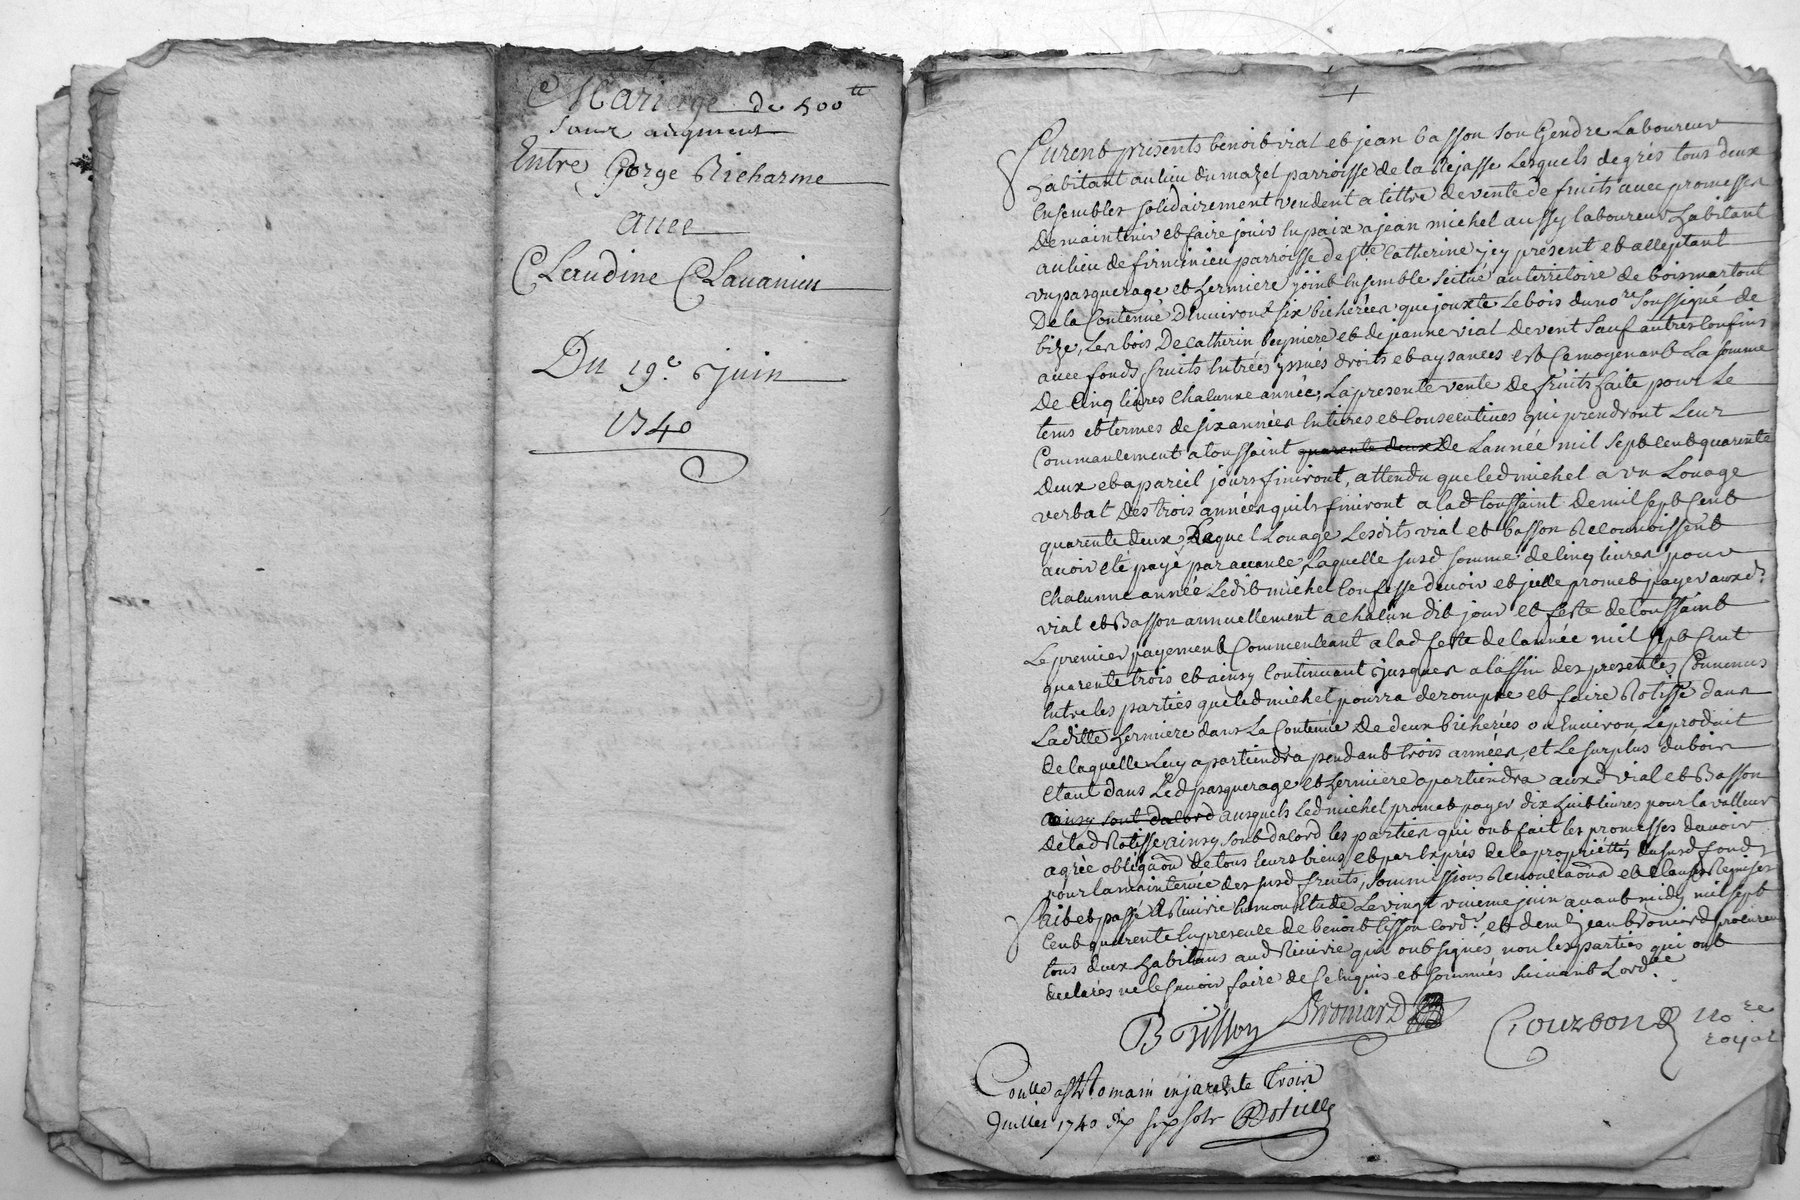 Mariage de 500ᵗᵗ
sans augment
Entre Gorge Richarme
avec
Claudine Clavanieu
Du 19ᵉ juin
1740
furent presents benoit vial et jean basson son gendre Laboureur
habitant au lieu du mazel parroisse de la Lesquels de grés tous deux
Ensembles solidairement vendent a tittre de vente de fruits avec promesses
de maintenir et faire jouir en paix a jean michel aussy laboureur habitant
au lieu de firminieu parroisse de Sᵗᵉ Catherine jcy présent et acceptant
un pasquerage et hermiere joint Ensemble scitué au territoire de boismartout
de la Contenue d'Environ six bicherées que jouxte Le bois du noʳᵉ soussigné de
bize, Les bois de Catherin et de jeanne vial de vent sauf autres Confins
avec fonds fruits Entrées yssuës droits et aysances est Ce moyenant La somme
De Cinq livres Chacunne année, La presente vente de fruits faite pour Le
tems et termes de six années Entieres et Consecutives qui prendront Leur
Commancement a toussaint quarente deux de L'année mil sept cent quarente
deux et a pareil jours finiront, attendu que led michel a un Louage
verbal des trois années quils finiront a lad toussaint de mil sept Cent
quarente deux Duquel Louage Lesdits vial et basson Reconnoissent
avoir eté payé par avance, Laquelle susd somme de Cinq livres pour
Chacunne année Ledit michel Confesse devoir et jcelle promet payer auxdˢ
vial et Basson annuellement a chacun dit jour et feste de toussaint
Le premier payement Commenceant a lad feste de l'année mil sept Cent
quarente trois et ainsy Continuant jusques a la ffin des presentes Convenus
Entre les parties que led michel pourra derompre et faire Rotisse dans
Laditte hermiere dans La Contenue de deux bicherées ou Environ, Le produit
de laquelle Luy apartiendra pendant trois années, et Le surplus du bois
Etant dans Led pasquerage et hermiere apartiendra auxd vial et Basson
ainsy sont dacord ausquels Led michel promet payer dix huit livres pour la valleur
de lad Rotisse ainsy sont dacord les parties qui ont fait les promesses davoir
agrée obligaõn de tous leurs biens et par Exprés de la propriettés du susd fonds
pour la maintenüe des susd fruits, soumissions Renonciaõns et Clauses Requises
fait et passé a Rivirie En mon Etude Le vingt unieme juin avant midy mil sept
Cent quarente En presence de benoit tisson Cordʳ et demʳ jean broniard procureur
tous deux habitans aud Rivirie qui ont signés non les parties qui ont
declarés ne le sçavoir faire de Ce Enquis et sommés suivant Lordᶜᵉ
B Tisson Broniard Courbon noʳᵉ
royal
Conllé a Sᵗ Romain en jarest le trois
Juillet 1740 R/ six sols